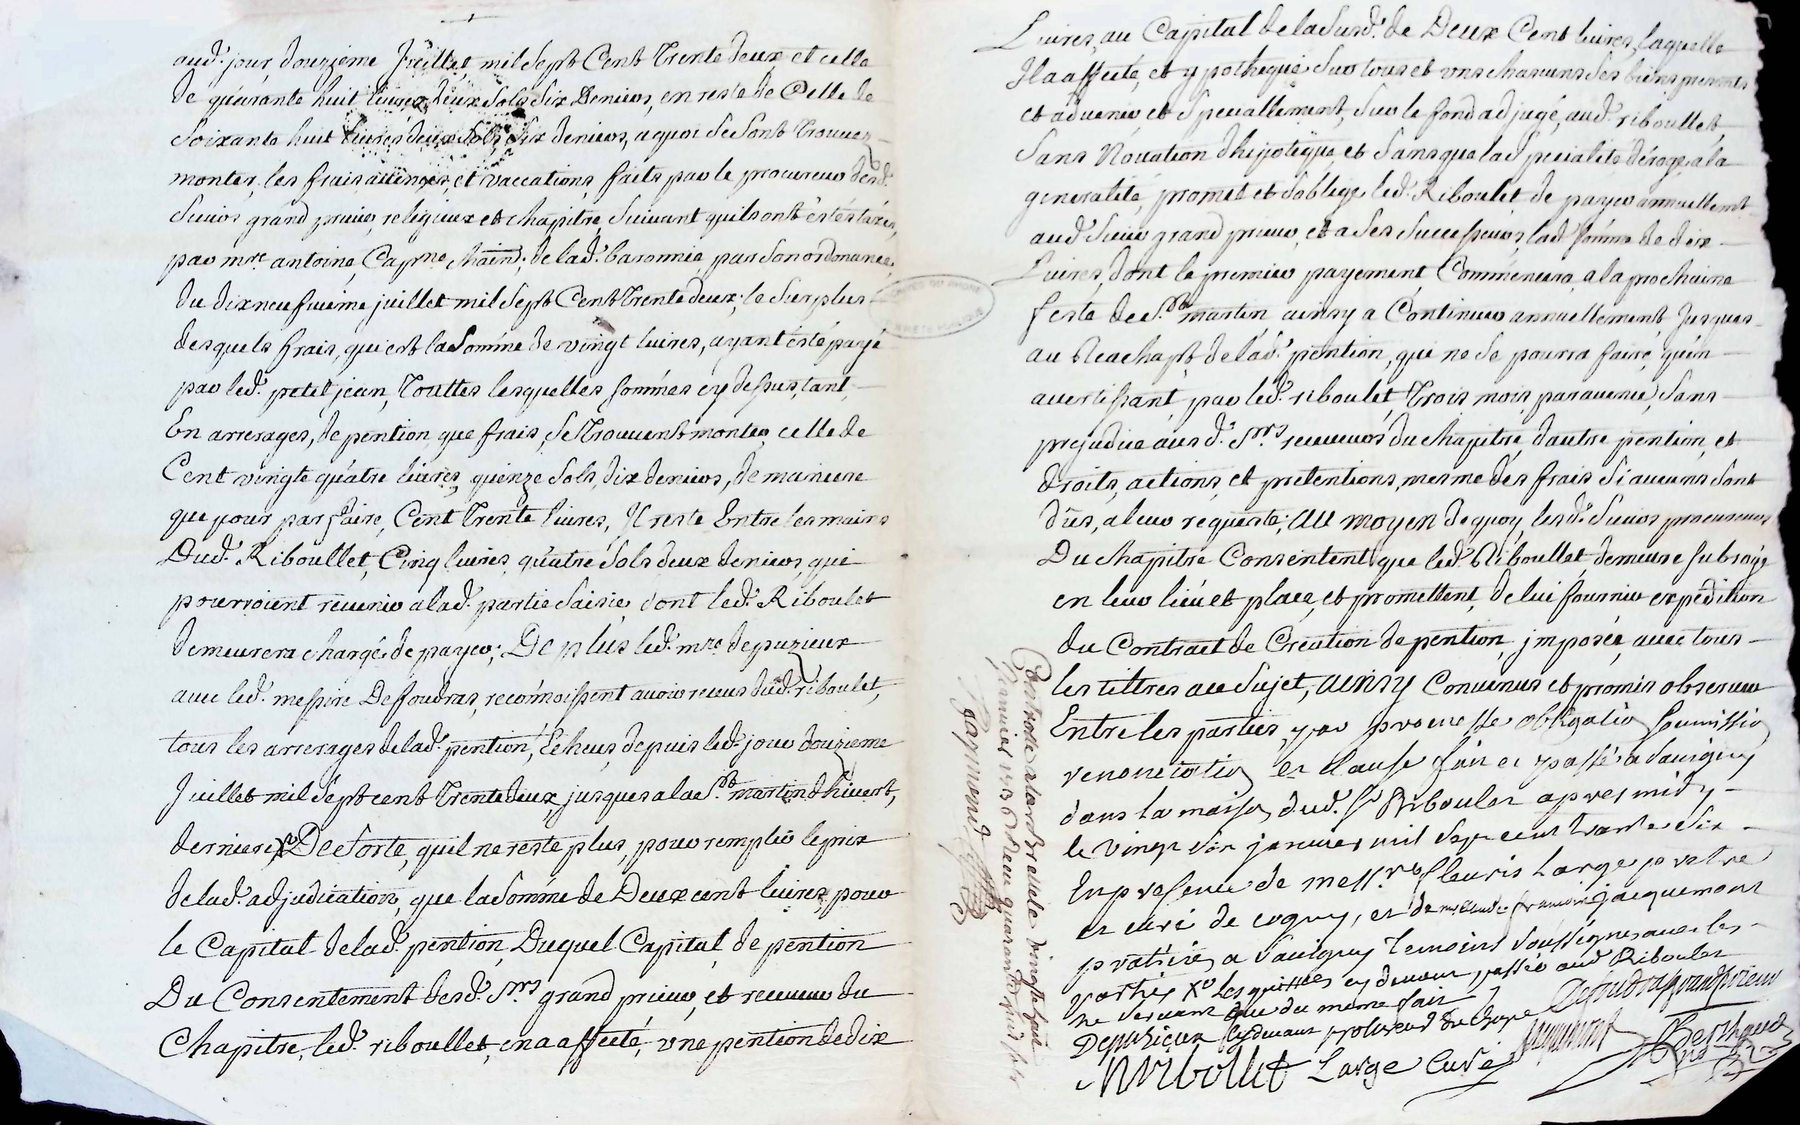 aud.t jour douzieme Juillet mil sept Cent trente deux et celle
de quarante huit livres deux sols six deniers, en reste de Celle de
Soixante huit livres deux sols six deniers, a quoi se sont trouvez
monter, les frais et vaccations faits par le procureur desd.
Sieurs grand prieur, religieux et chapitre, suivant quils ont estés taxes,
par mre antoine de lad. baronnie, par son ordonance
du dix neufvieme juillet mil sept Cent trente deux; le surplus
desquels frais, qui est la Somme de vingt livres, ayant esté payé
par led. petit jean, touttes lesquelles sommes cy dessus, tant
En arrerages, de pention que frais, se trouvent monter, celle de
Cent vingt quatre livres, quinze sols, dix deniers, de maniere
que pour parfaire, Cent trente livres, Il reste Entre les mains
Dud. Riboullet, Cinq livres, quatre sols deux deniers, qui
pourroient revenir a lad. partie saisie dont led. Riboulet
demeurera chargé de payer; De plus led. mre depuzieux
avec led. messire Defoudras, reconnoissent avoir receus dud. riboulet,
tous les arrerages de lad. pention, Echeus, depuis led. jour douzieme
Juillet mil sept cent trente deux, jusques a la St martin dhivert,
derniere De sorte, quil ne reste plus, pour remplir le prix
de lad. adjudication, que la Somme de Deux cent livres, pour
le Capital de lad. pention, Duquel Capital, de pention
Du Consentement desd. Srs grand prieur, et receveur du
Chapitre, led. riboullet, en a affecté, une pention de dix
Livres, au Capital de la Susd. de Deux Cent livres, laquelle
Il a affecté, et ypothequé sur tous et uns chacuns ses biens presents
et advenir, et speciallement, sur le fond adjugé, aud. riboullet,
Sans Novation dhipoteque, et Sans que lad. specialité déroge a la
generalité, promet et soblige led. Riboulet de payer annuellement
aud. Sieur grand prieur, et a ses Successeurs, lad. somme de dix
Livres, dont le premier payement, Commencera, a la prochaine
feste de St martin ainsy a Continuer annuellement Jusques
au Reachapt de lad. pention, qui ne se pourra faire, qu'en
avertissant, par led. riboulet, trois mois, paravenir, sans
prejudice ausd. Srs receveurs du chapitre, d'autre pention, et
droits, actions, et pretentions, mesme des frais si aucuns sont
dûs, a leur requeste; Au moyen de quoy, lesd. Sieurs procureurs
Du chapitre Consentent que led. Riboullet, demeure subrogé
en leur lieu et place, et promettent, de lui fournir expédition
du Contract de Création de pention, imposée, avec tous
les tittres au sujet, ainsy Convenus et promis observer
Entre les parties, par promesse obligatio soumissio
renonciatio et clause fait et passé a Savigny
dans la maison dud. Sr Riboulet apres midy
le vingt six janvier mil sept cent trente six
En presence de messre fleuris Large prestre
et curé de cogny, et de jacquemont
praticien a Savigny temoins soussignes avec les
parties Xo passée aud. Riboulet
ne servant que du meme fait
Depuzieux procureur du Chapre Defoudras grand prieur
NRibollet Large Curé Jacquemont Berthaud
Controlé a Larbresle vingt huit
Janvier 1736 Receu quarante
Raymond